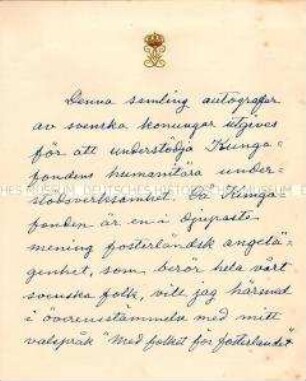 Denna samling autografer
av svenska konungar utgives
för att understödja Kunga-
fondens humanitära under-
stödsverksamhet. Då Kunga-
fonden är en i djupaste
mening fosterländsk angelä-
genhet, som berör hela vårt
svenska folk, vill jag härmed
i överensstämmelse med mitt
valspråk "Med folket för fosterlandet"